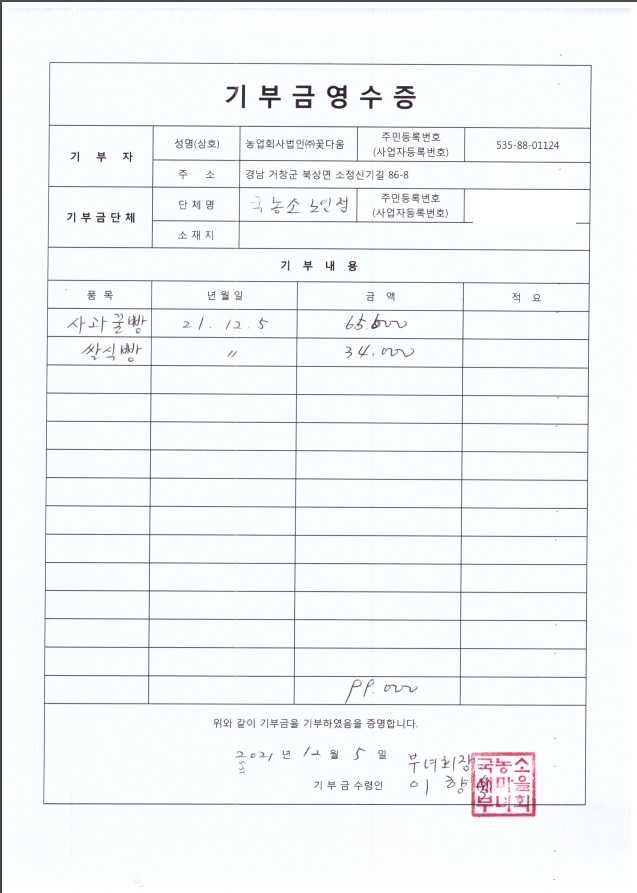 기 부 금 영 수 증
기 부 자
성명(상호) 농업회사법인㈜꽃다움 주민등록번호 (사업자등록번호) 535-88-01124
주 소 경남 거창군 북상면 소정신기길 86-8
기부금단체
단체명 국농소 노인정 주민등록번호 (사업자등록번호)
소재지
기 부 내 용
품 목 년월일 금 액 적 요
사과꿀빵 21. 12. 5 65.000
쌀식빵 〃 34.000
99.000
위와 같이 기부금을 기부하였음을 증명합니다.
2021 년 12 월 5 일 부녀회장
기 부 금 수령인 이 향
국농소
새마을
부녀회